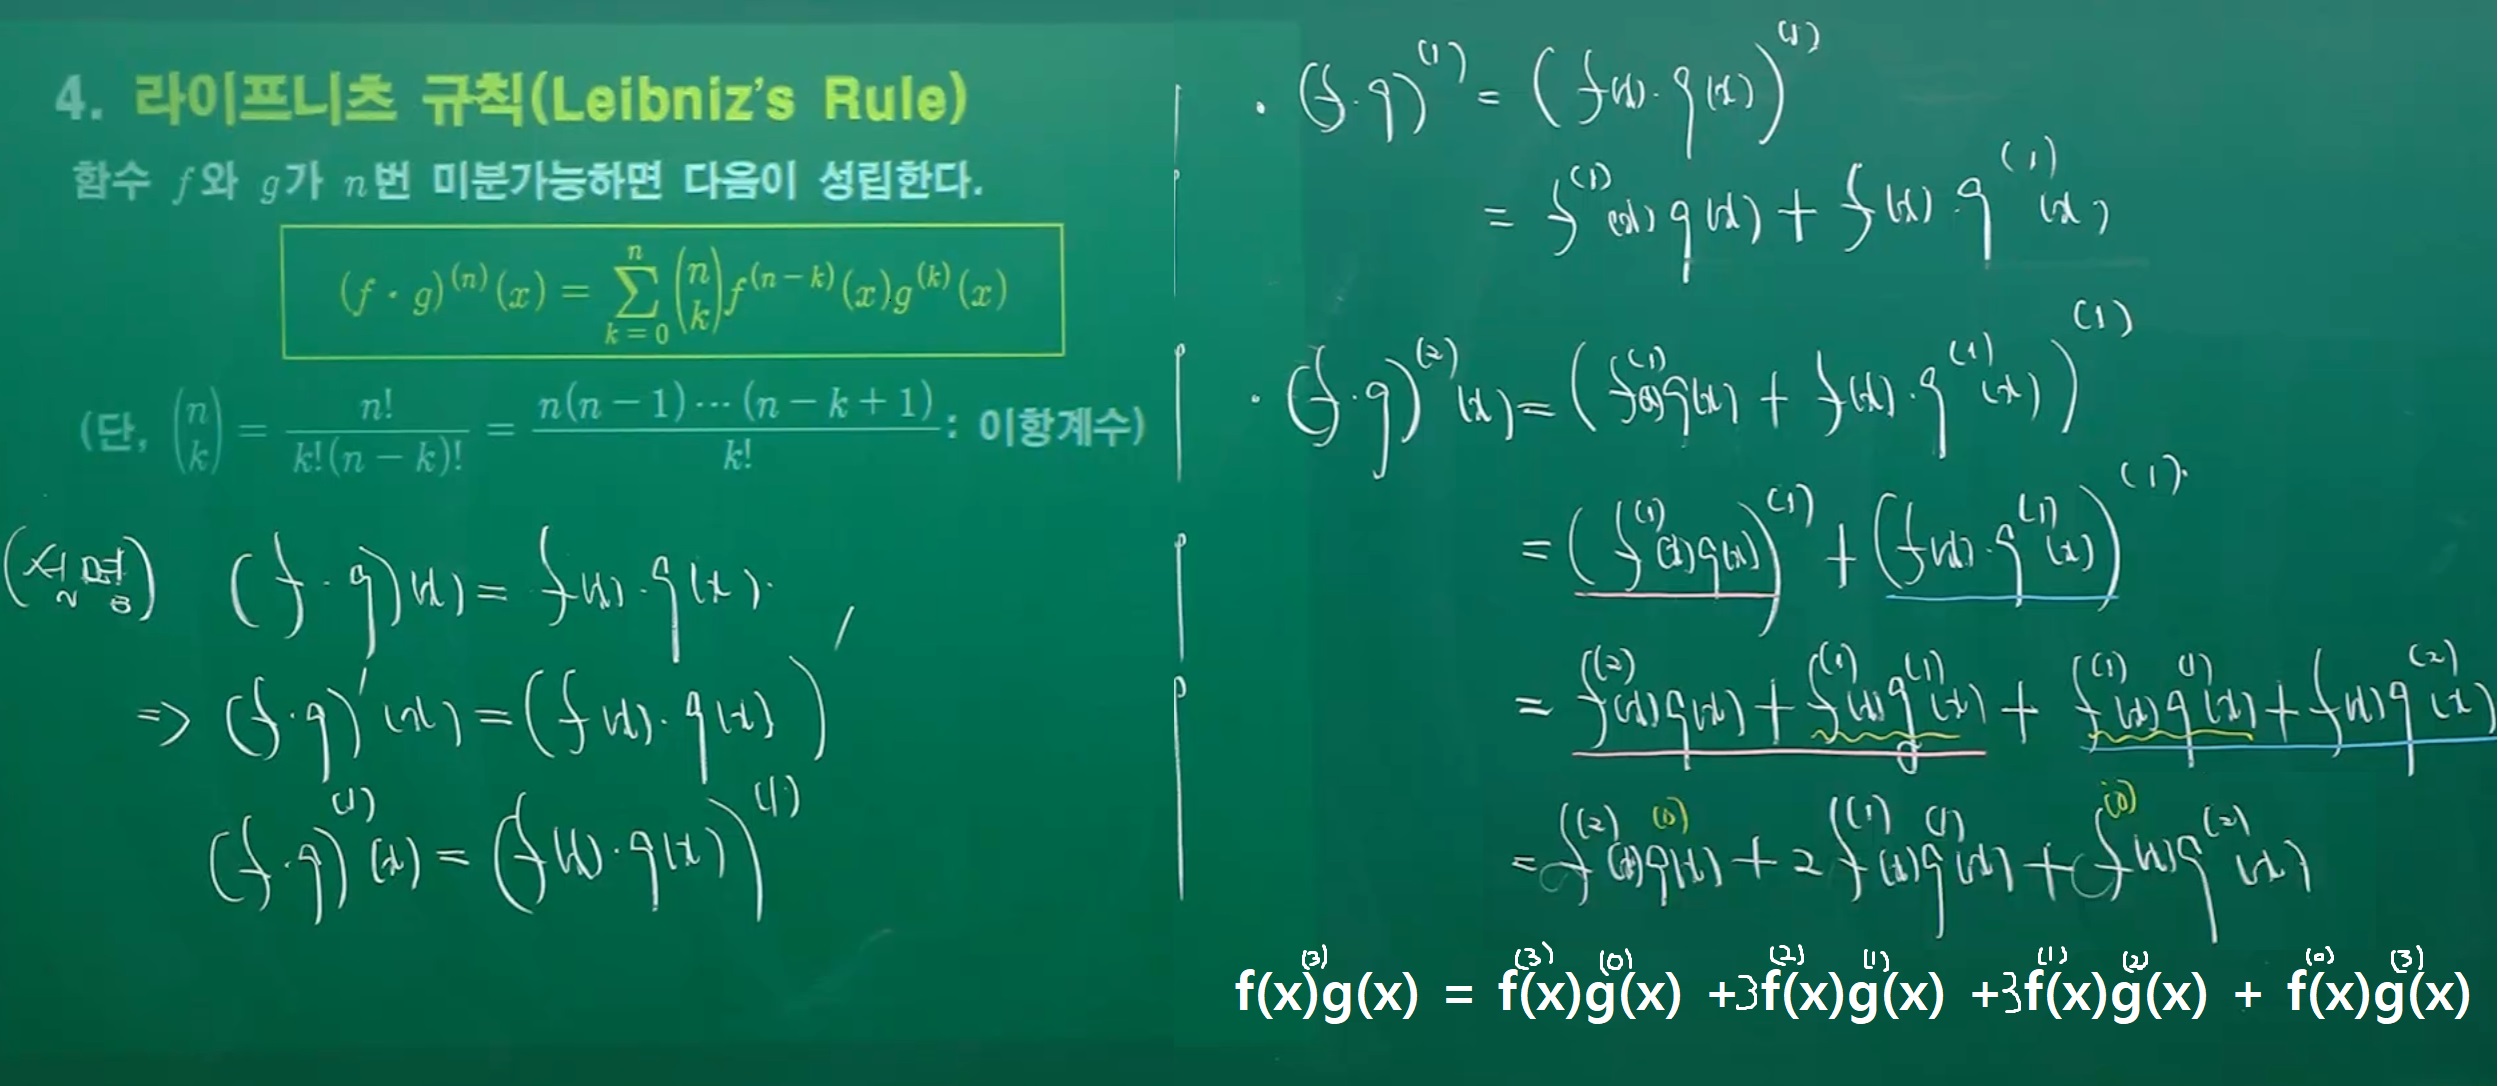 4. 라이프니츠 규칙(Leibniz's Rule)
함수 f와 g가 n번 미분가능하면 다음이 성립한다.
(f · g)^(n)(x) = ∑_{k=0}^{n} (n k) f^(n-k)(x)g^(k)(x)
(단, (n k) = n!/k!(n-k)! = n(n-1)···(n-k+1)/k! : 이항계수)
(설명) (f·g)(x) = f(x)·g(x).
=> (f·g)'(x) = (f(x)·g(x))'
(f·g)^(1)(x) = (f(x)·g(x))^(1)
· (f·g)^(1) = (f(x)·g(x))^(1)
= f^(1)(x)g(x) + f(x)·g^(1)(x)
· (f·g)^(2)(x) = (f^(1)(x)g(x) + f(x)·g^(1)(x))^(1)
= (f^(1)(x)g(x))^(1) + (f(x)·g^(1)(x))^(1)
= f^(2)(x)g(x) + f^(1)(x)g^(1)(x) + f^(1)(x)g^(1)(x) + f(x)g^(2)(x)
= f^(2)(x)g^(0)(x) + 2f^(1)(x)g^(1)(x) + f^(0)(x)g^(2)(x)
f(x)g(x)^(3) = f^(3)(x)g^(0)(x) + 3f^(2)(x)g^(1)(x) + 3f^(1)(x)g^(2)(x) + f^(0)(x)g^(3)(x)